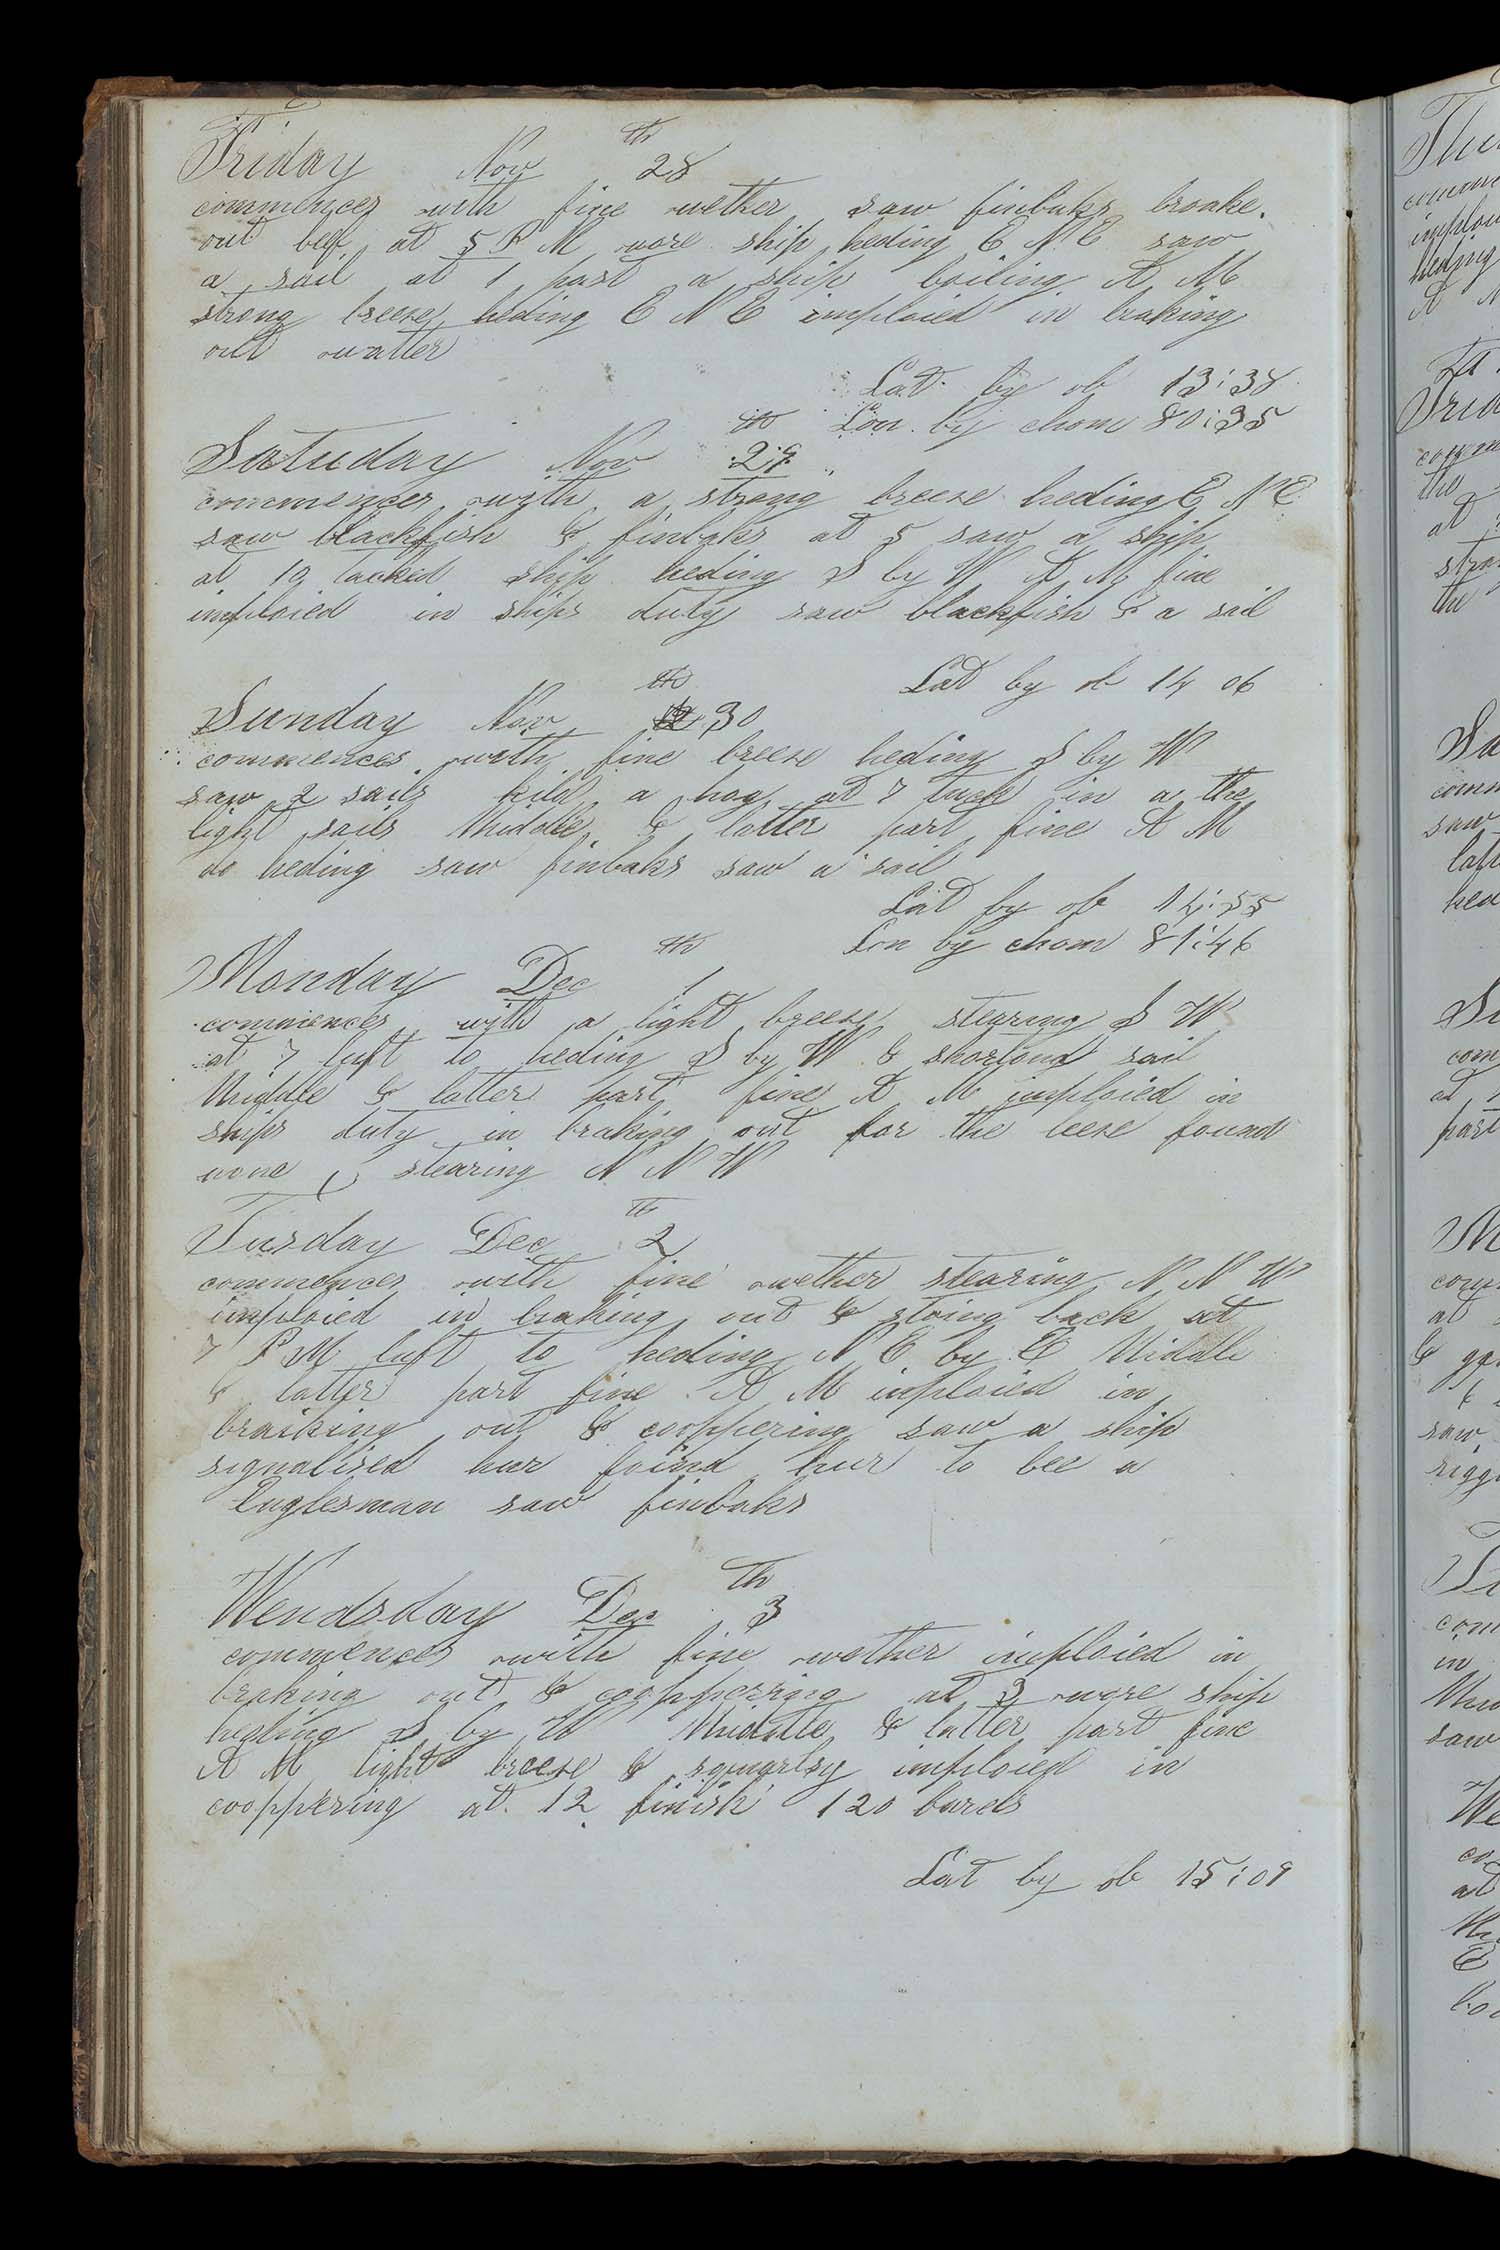 Friday Nov 28th
commences with fine wether saw finbaks broake
out beef at 5 P M wore ship heding E N E saw
a sail at 1 past a ship boiling A M
strong breese heding E N E imploied in braking
out watter
Lat by ob 13:38
Lon by chom 80:35
Satuday Nov 29th
commences with a strong breese heding E N E
saw blackfish & finbaks at 5 saw a ship
at 10 tackid ship heding S by W A M fine
imploied in ships duty saw blackfish & a sail
Lat by ob 14 06
Sunday Nov 30th
commences with fine breese heding S by W
saw 2 sails kild a hog at 7 tuck in a the
light sails Middle & latter part fine A M
do heding saw finbaks saw a sail
Lat by ob 14:55
Lon by chom 81:46
Monday Dec 1th
commences with a light breese stearing S W
at 7 luft to heding S by W & shortond sail
Middle & latter part fine A M imploied in
ships duty in braking out for the leese found
none stearing N N W
Tusday Dec 2th
commences with fine wether stearing N N W
imploied in braking out & stoing back at
7 P M luft to heding N E by E Middle
& latter part fine A M imploied in
braiking out & cooppering saw a ship
signalised hur foind hur to bee a
Englesman saw finbaks
Wendsday Dec 3th
commences with fine wether imploied in
braking out & cooppering at 3 wore ship
heding S by W Middle & latter part fine
A M light breese & imploied in
cooppering at 12 finish 120 barels
Lat by ob 15:09
Thu
Frid
the
at
the
Sa
saw
Su
at
part
M
at
saw
in
saw
We
at
E